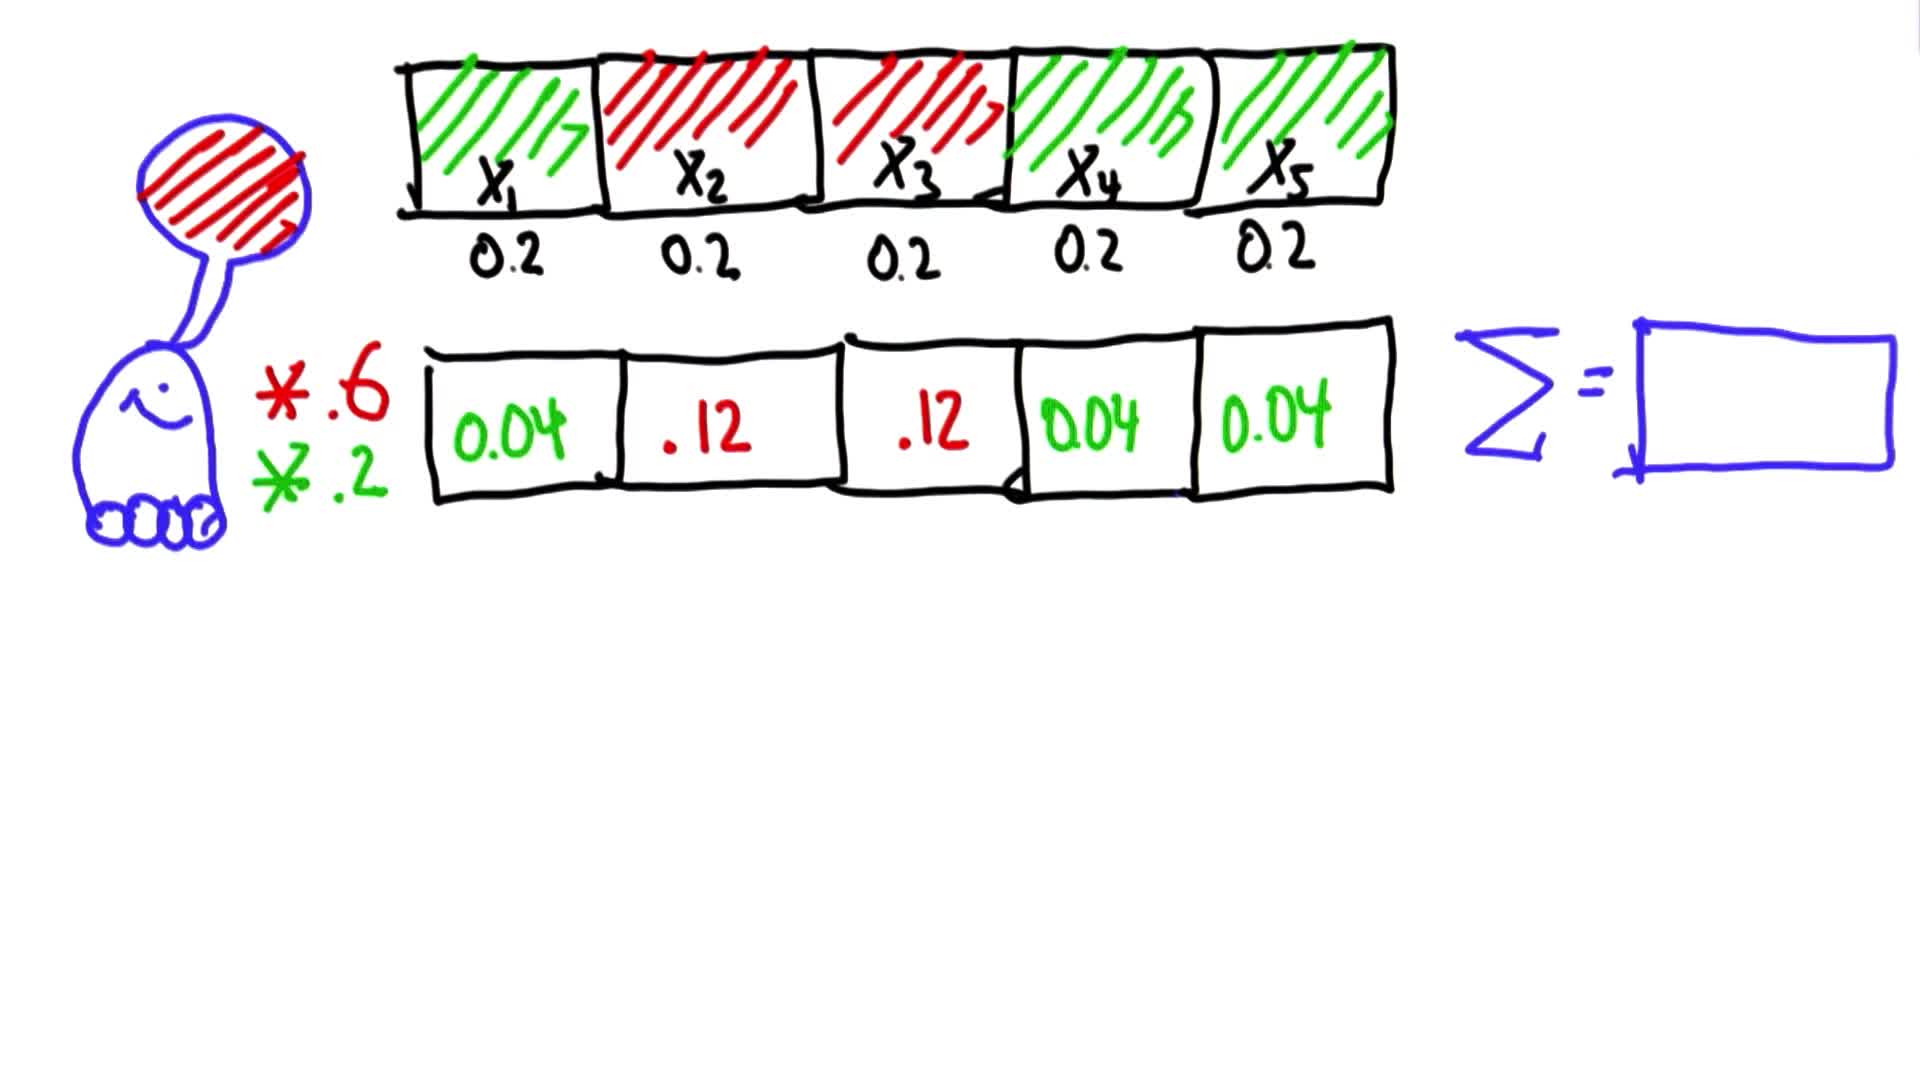 X₁ X₂ X₃ X₄ X₅
0.2 0.2 0.2 0.2 0.2
*.6
*.2
0.04 .12 .12 0.04 0.04
Σ =